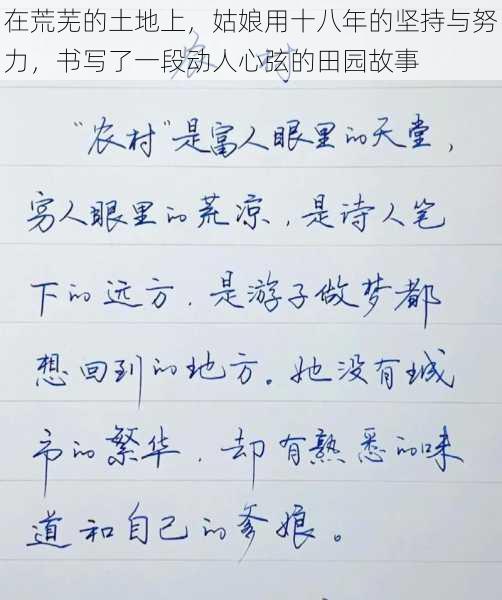 在荒芜的土地上，姑娘用十八年的坚持与努
力，书写了一段动人心弦的田园故事
农村
"农村"是富人眼里的天堂，
穷人眼里的荒凉，是诗人笔
下的远方，是游子做梦都
想回到的地方。她没有城
市的繁华，却有熟悉的味
道和自己的爹娘。